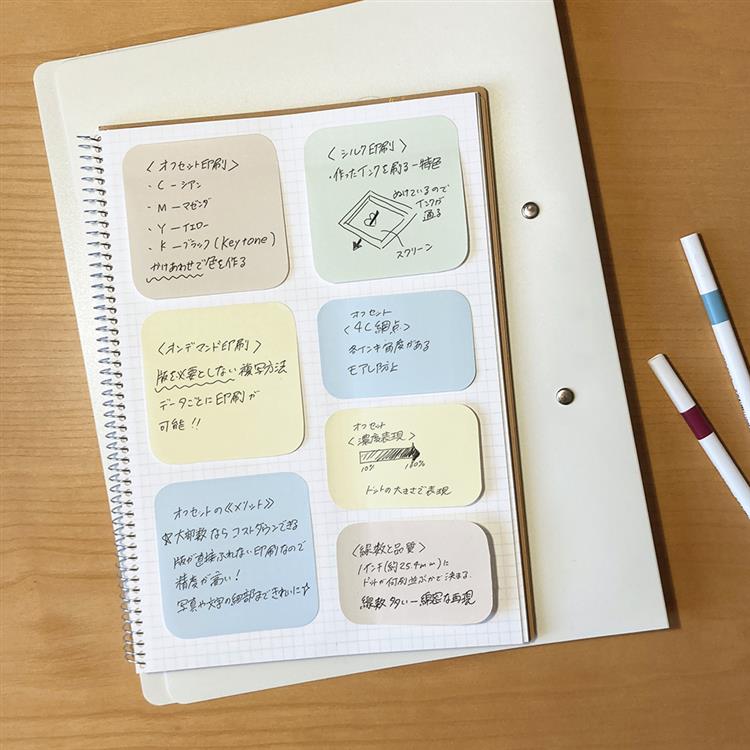 〈オフセット印刷〉
・C ー シアン
・M ー マゼンダ
・Y ー イエロー
・K ー ブラック(Keytone)
かけあわせで色を作る
〈シルク印刷〉
・作ったインクを刷る ー 特色
ぬけているので
インクが
通る
スクリーン
〈オンデマンド印刷〉
版を必要としない複写方法
データごとに印刷が
可能!!
オフセット
〈4C網点〉
各インキ角度がある
モアレ防止
オフセット
〈濃度表現〉
10% 100%
ドットの大きさで表現
オフセットの《メリット》
☆大部数ならコストダウンできる
版が直接ふれない印刷なので
精度が高い!
写真や文字の細部まできれいに☆
〈線数と品質〉
1インチ(約25.4mm)に
ドットが何列並ぶかで決まる。
線数多い ー 綿密な再現